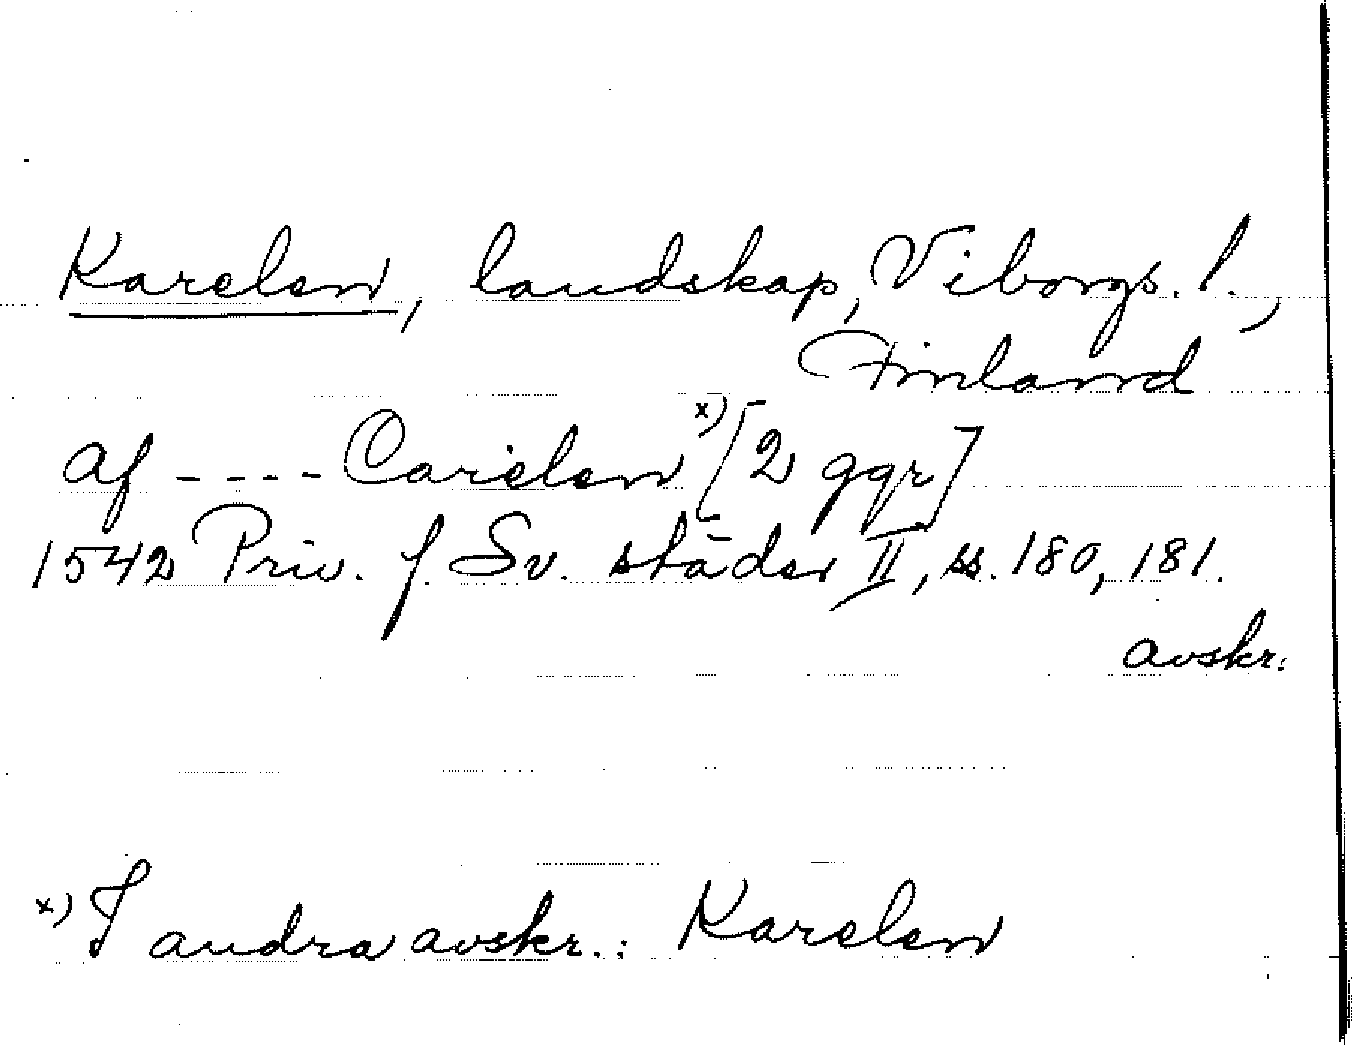 Karelen, landskap, Viborgs. l.,
Finland
af ---- Carelen x) [2 ggr]
1542 Priv. f. Sv. städer II, ss. 180, 181.
avskr.
x) I andra avskr.: Karelen